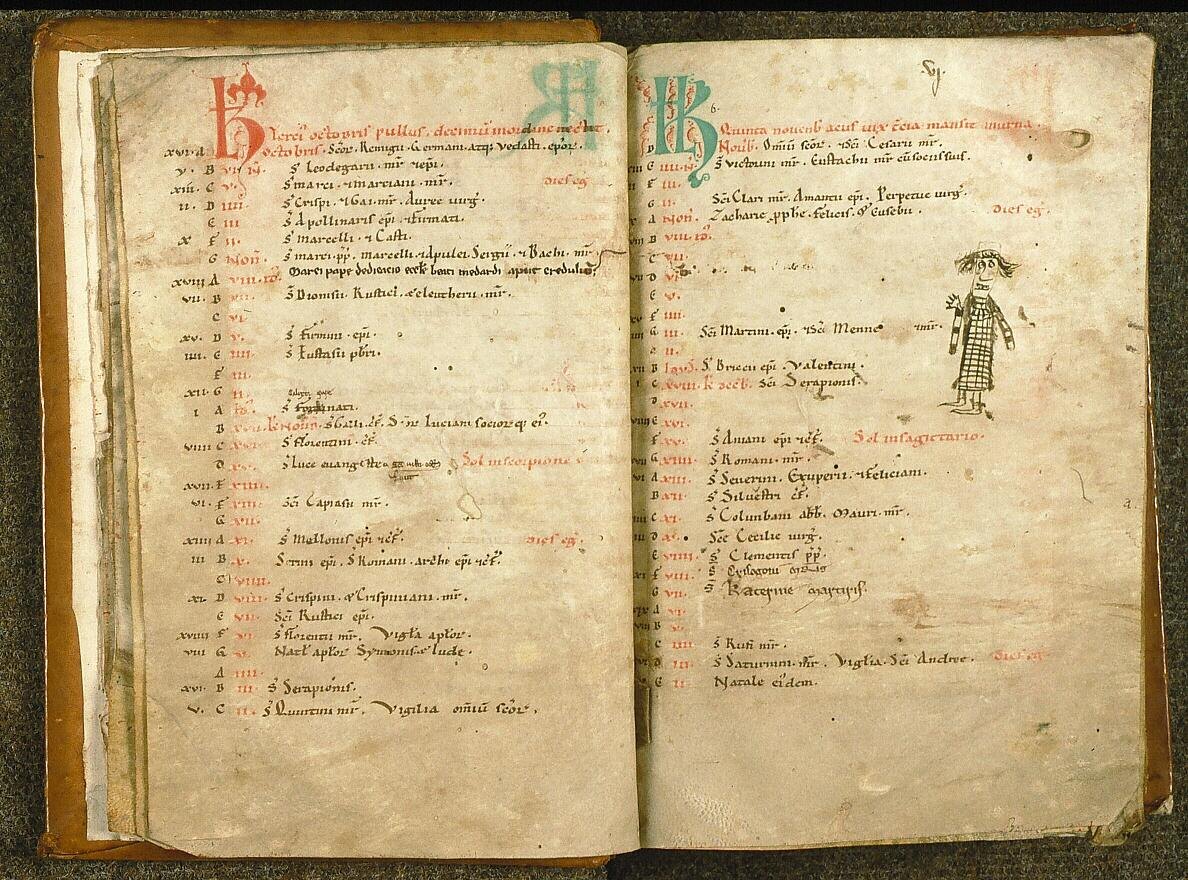 KL Tercius octobris pullus. decimus in ordine nectit.
xvi. A octobris. Scor. Remigii. Germani. atq; Vedasti. epor.
v. B vi. N. S Leodegarii. mr. epi.
xiii. C v. S marci. marciani. mr. dies eg.
ii. D iiii. S Crispi. Gai. mr. Auree virg.
E iii S Apollinaris epi. firmati.
x F ii. S marcelli. Casti.
G Non. S marci. pp. marcelli. Apulei. Sergii. Bachi. mr.
Marci pape dedicacio eccle beati medardi
xviii A viii. id.
vii. B vii. S Dionisii. Rustici. eleutherii. mr.
C vi.
xv. D v. S firmini. epi.
iiii. E iiii. S Eustasii pbri.
F iii.
xii. G ii.
i A id. S
B xvii. kl Nove. S Galli. cf. S Luciani socior q; ei.
viiii C xvi. S florentini. cf.
D xv. S Luce evang Sol in scorpione
xvii. E xiiii.
vi. F xiii. Sci Caprasii mr.
G xii.
xiiii A xi. S Mellonis epi. cf. dies eg.
iii B x. Severini epi. S Romani. archi epi. cf.
C viiii.
xi. D viii. S Crispini. Crispiniani. mr.
E vii. Sci Rustici epi.
xviiii F vi. S florentii mr. Vigla aplor.
viii G v. Natl aplor Symonis. iude.
A iiii.
xvi. B iii. S Serapionis.
v. C ii. S Quintini mr. Vigilia omiu scor.
vj.
KL Quinta novenb acus vix tercia mansit in urna.
D Noub. Omiu scor. Sci Cesarii mr.
E iiii. N. S victorini mr. Eustachii mr. cu sociis suis.
F iii.
G ii. Sci Clari mr. Amantii epi. Perpetue virg.
A Non. Zacharie pphe. felicis. Eusebii. dies eg.
B viii. id.
C vii.
D vi.
E v.
F iiii.
G iii. Sci Martini. epi. Sci Menne mr.
A ii.
B Idus. S Briccii epi. Valentini.
C xviii. kl decb. Sci Serapionis.
D xvii.
E xvi.
F xv. S Aniani epi. cf. Sol in sagittario.
G xiiii. S Romani. mr.
A xiii. S Severini. Exuperii. feliciani.
B xii. S Silvestri cf.
C xi. S Columbani abb. Mauri. mr. a.
D x. Sce Cecilie virg.
E viiii. S Clementis pp.
F viii. S Crisogoni
G vii. S Katerine martiris.
A vi.
B v.
C iiii. S Rufi mr.
D iii. S Saturnini. mr. Vigilia. Sci Andree. dies eg.
E ii. Natale eidem.